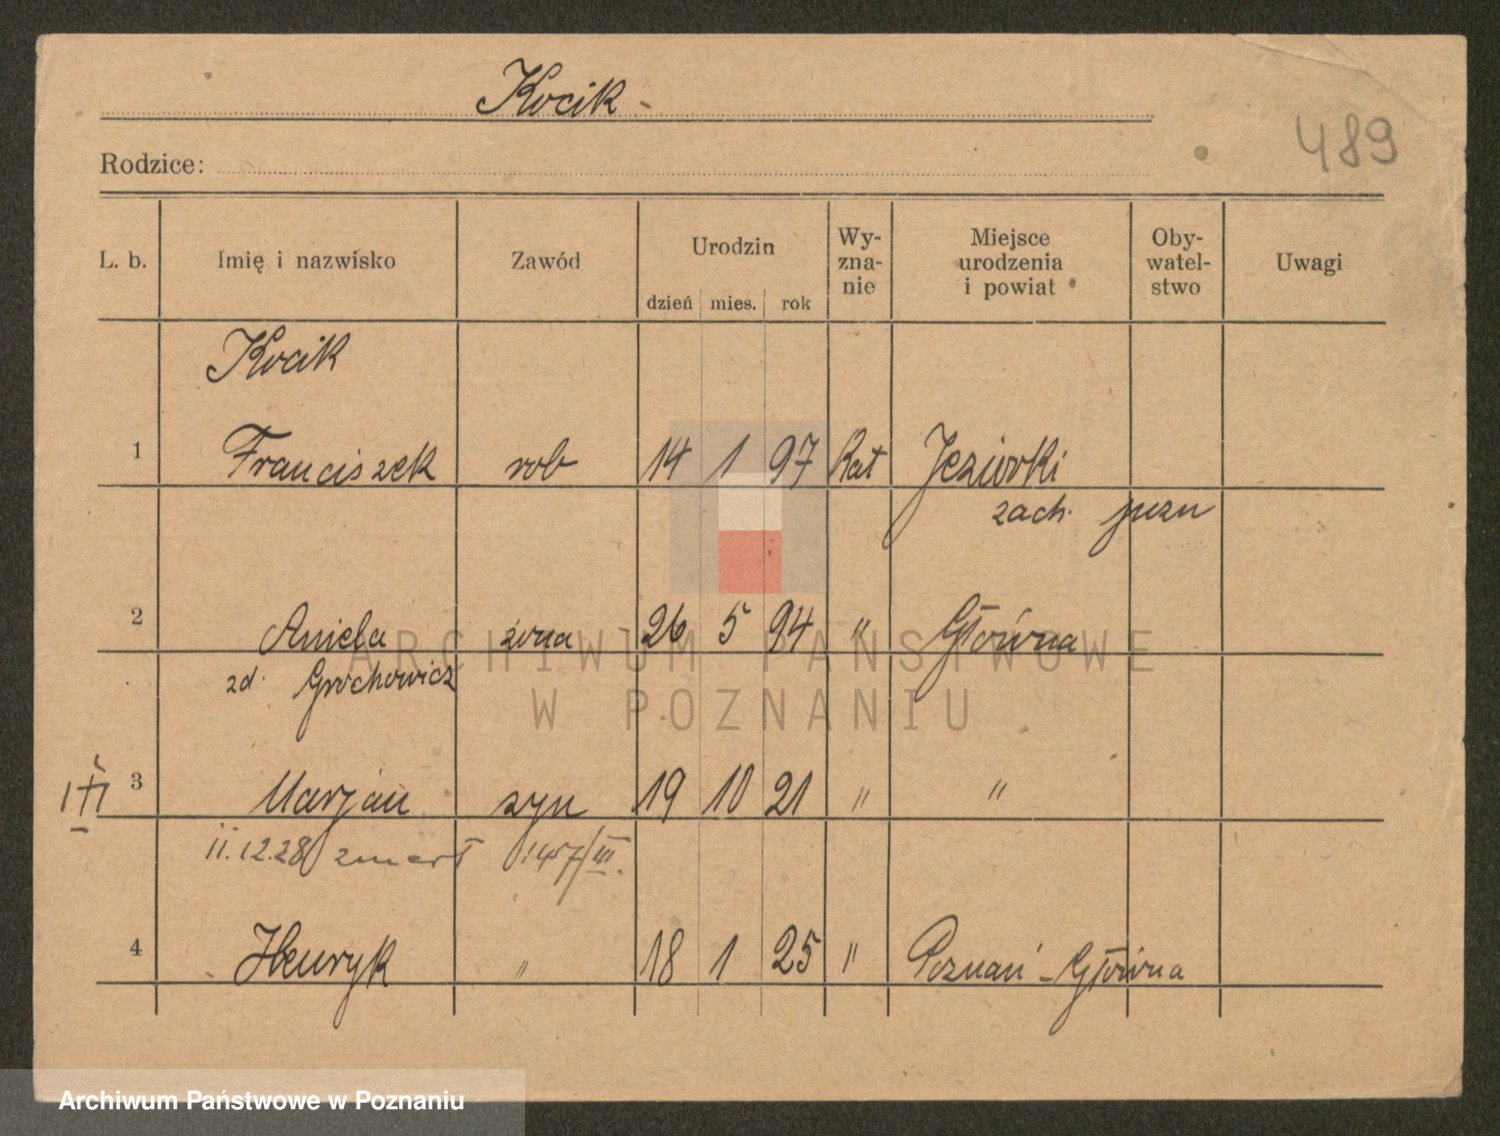 Kocik
489
Rodzice:
L. b. Imię i nazwisko Zawód Urodzin Wy- Miejsce Oby- Uwagi
zna- urodzenia watel-
dzień mies. rok nie i powiat stwo
Kocik
1 Franciszek rob 14 1 97 Kat Jeziorki
zach. pozn
2 Aniela żona 26 5 94 " Główna
zd. Grochowicz
3 Marjan syn 19 10 21 " "
11.12.28 zmarł 1457/III.
4 Henryk " 18 1 25 " Poznań - Główna
ARCHIWUM PAŃSTWOWE
W POZNANIU
Archiwum Państwowe w Poznaniu